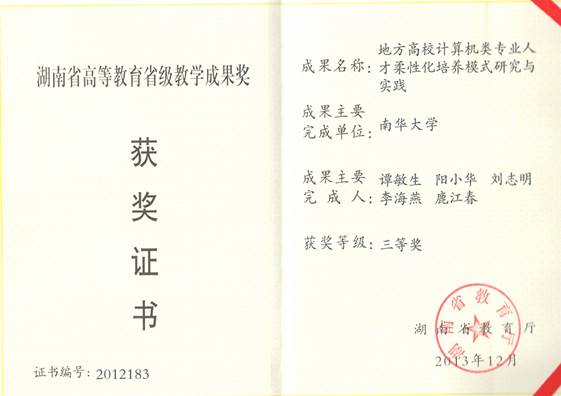 湖南省高等教育省级教学成果奖
获
奖
证
书
证书编号：2012183
成果名称：地方高校计算机类专业人
才柔性化培养模式研究与
实践
成果主要
完成单位：南华大学
成果主要
完成人：谭敏生 阳小华 刘志明
李海燕 鹿江春
获奖等级：三等奖
湖南省教育厅
2013年12月
湖南省教育厅